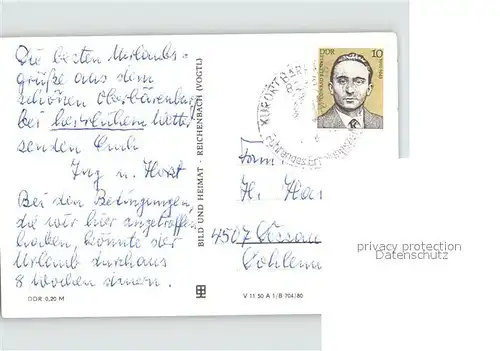 Die besten Urlaubs-
grüße aus dem
schönen Oberbärenburg
bei herrlichem Wetter
senden Euch
Ing u. Horst
Bei den Bedingungen,
die wir hier angetroffen
haben, könnte der
Urlaub durchaus
8 Wochen dauern.
DDR 0,20 M
BILD UND HEIMAT · REICHENBACH (VOGTL)
V 11 50 A 1/B 704/80
DDR 10
KURORT
Fam
H.
4507
privacy protection
Datenschutz